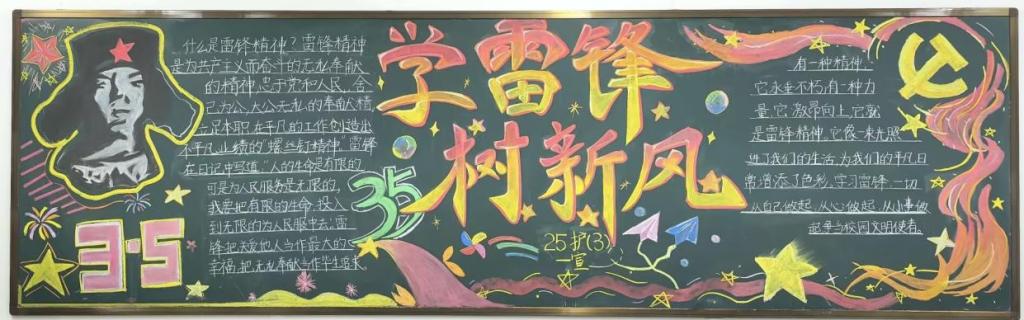 什么是雷锋精神？雷锋精神
是为共产主义而奋斗的无私奉献
的精神,忠于党和人民,舍
己为公,大公无私的奉献精
立足本职,在平凡的工作创造出
不平凡业绩的"螺丝钉精神"雷锋
在日记中写道,"人的生命是有限的
可是为人民服务是无限的,
我要把有限的生命,投入
到无限的为人民服中去。雷
锋把
他人当作最大的
幸福,把无私奉献当作毕生追求。
3·5
学雷锋
树新风
35
25护(3)
一宣
有一种精神
它永垂不朽,有一种力
量,它激昂向上,它就
是雷锋精神,它像一束光照
进了我们的生活,为我们的平凡日
常增添了色彩,学习雷锋,一切
从自己做起,从心做起,从小事做
起,争当校园文明使者